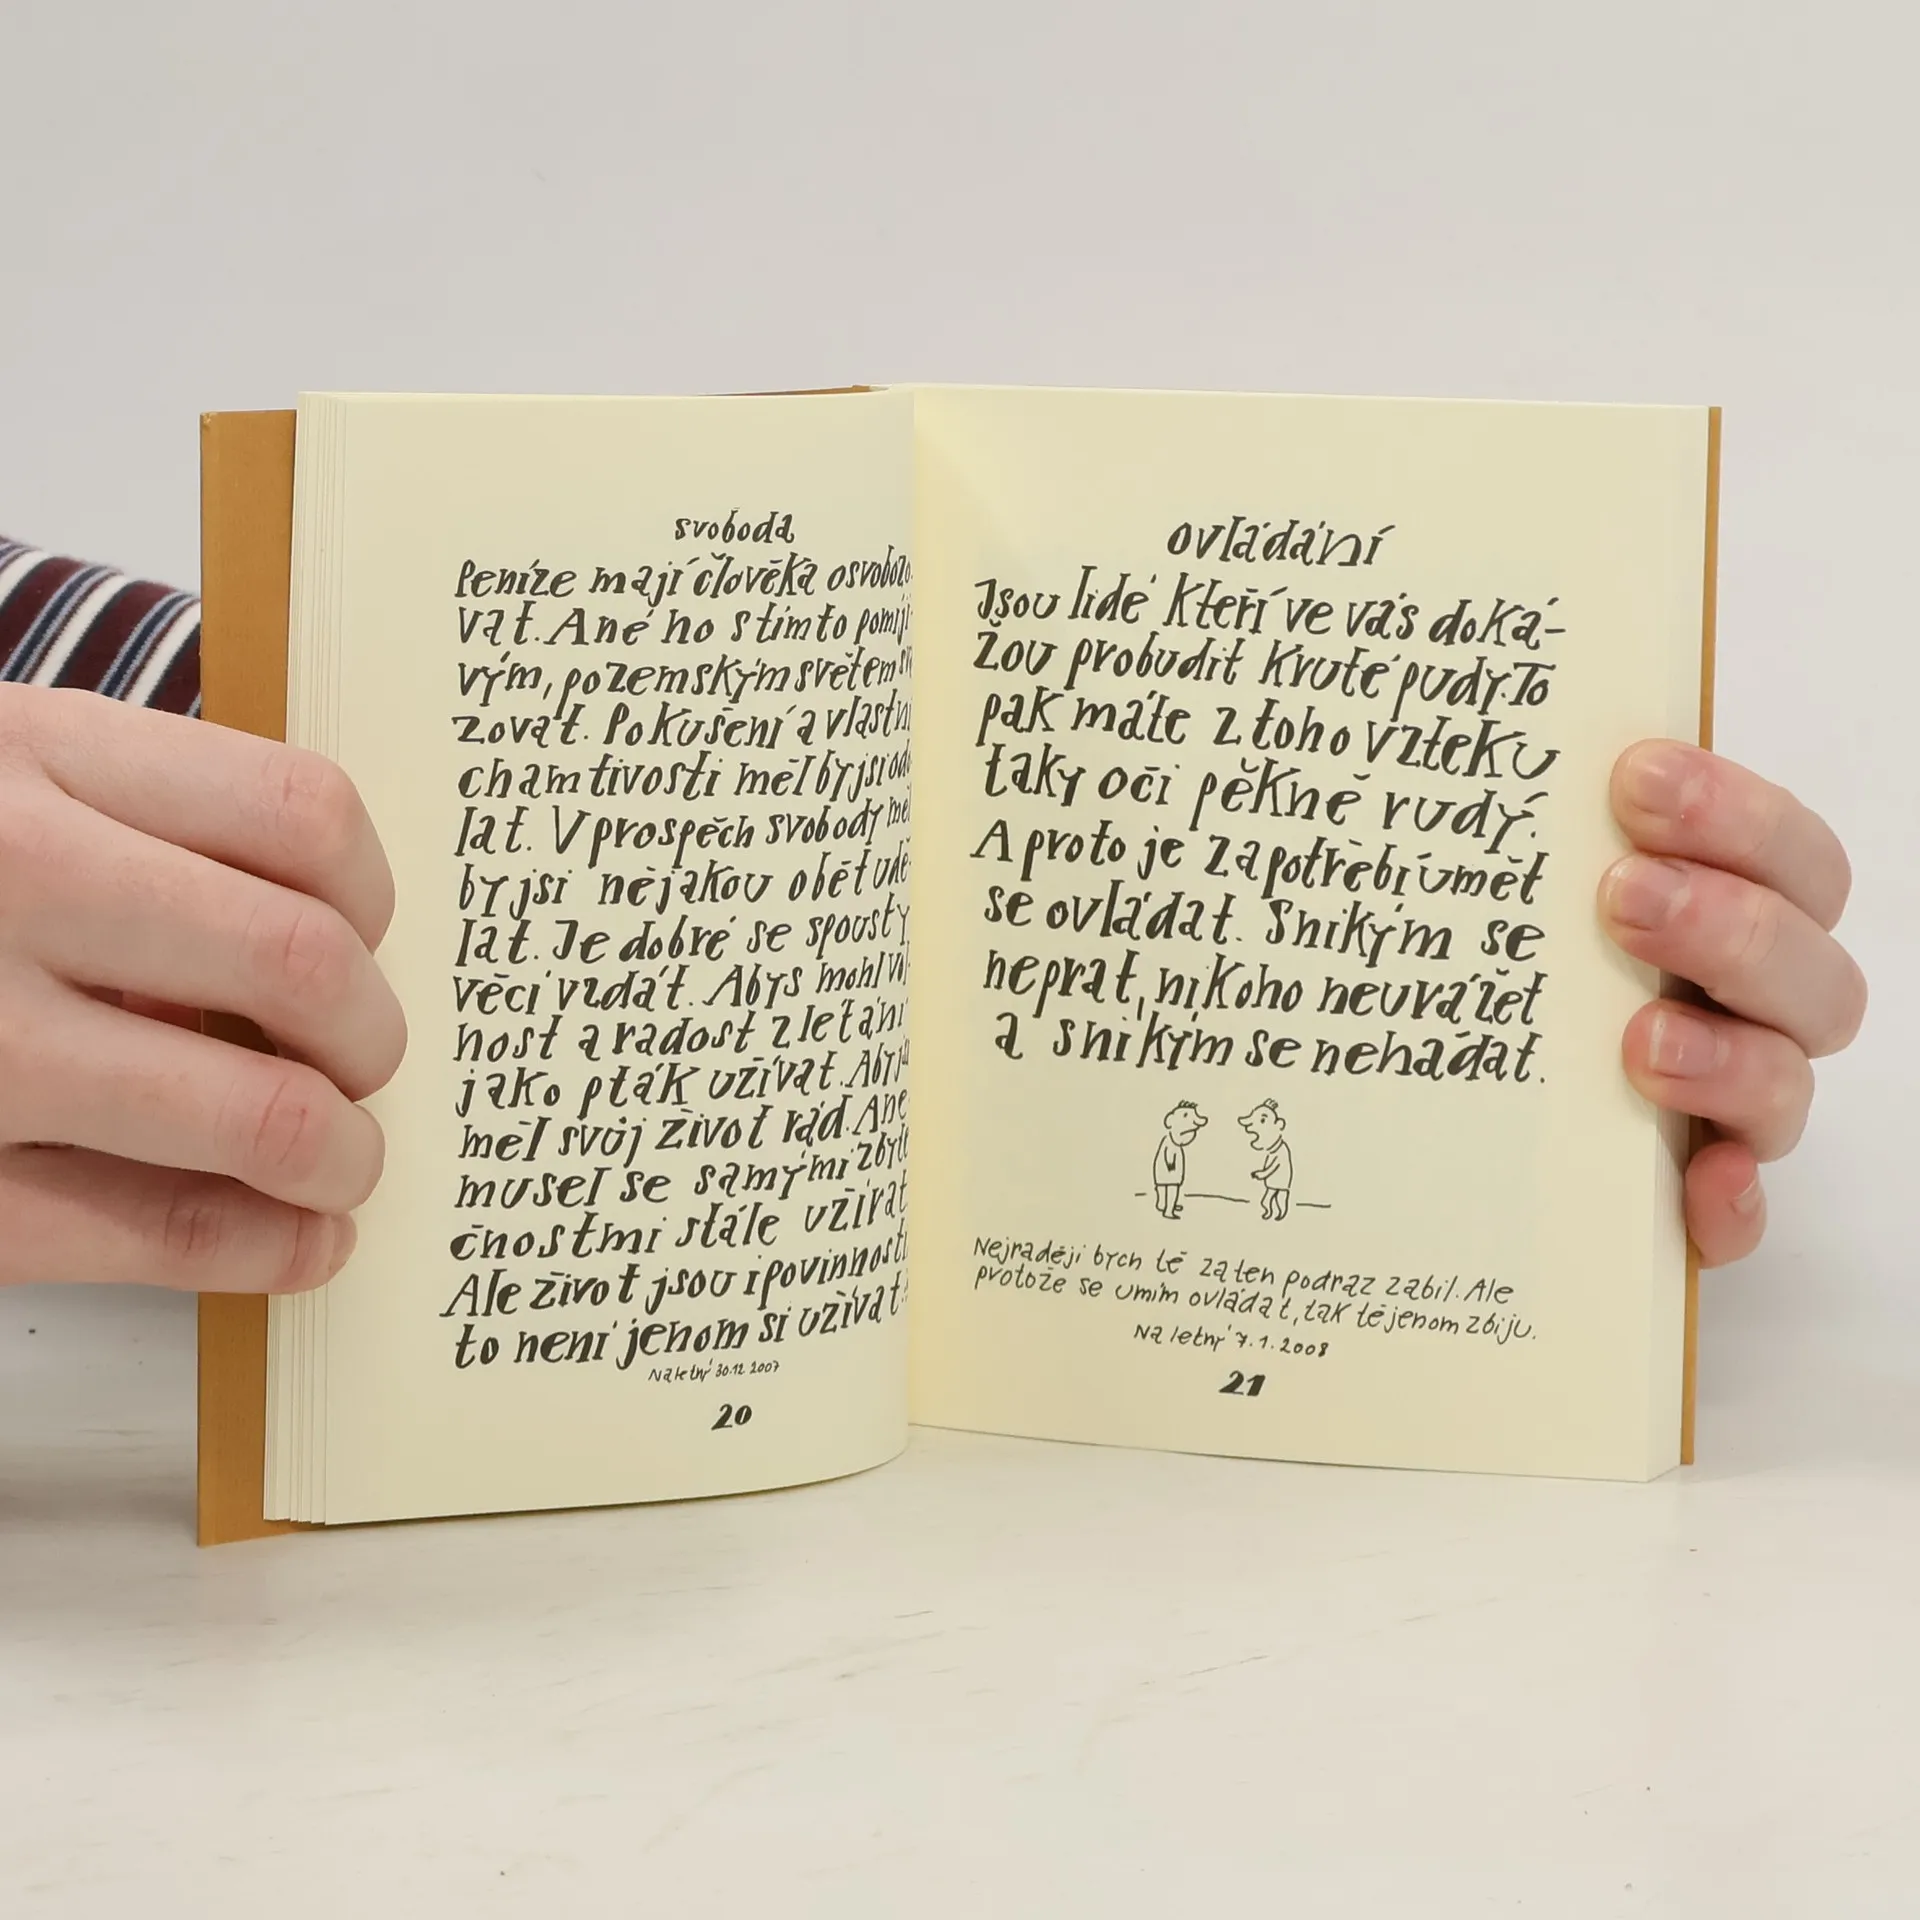 svoboda
Peníze mají člověka osvobozo-
vat. A né ho s tímto pomíji-
vým, pozemským světem
zovat. Pokušení a vlastní
chamtivosti měl by jsi odo-
lat. V prospěch svobody měl
by jsi nějakou oběť udě-
lat. Je dobré se spousty
věcí vzdát. Abys mohl vol-
nost a radost z létání
jako pták užívat. Aby jsi
měl svůj život rád. A ne
musel se samými zbyte
čnostmi stále užírat
Ale život jsou i povinnosti
to není jenom si užívat!
Na letný 30.12 2007
20
ovládání
Jsou lidé kteří ve vás doká-
žou probudit kruté pudy. To
pak máte z toho vzteku
taky oči pěkně rudý.
A proto je zapotřebí úmět
se ovládat. S nikým se
neprat, nikoho neuvážet
a s nikým se nehádat.
Nejraději bych tě za ten podraz zabil. Ale
protože se umím ovládat, tak tě jenom zbiju.
Na letný 7.1.2008
21